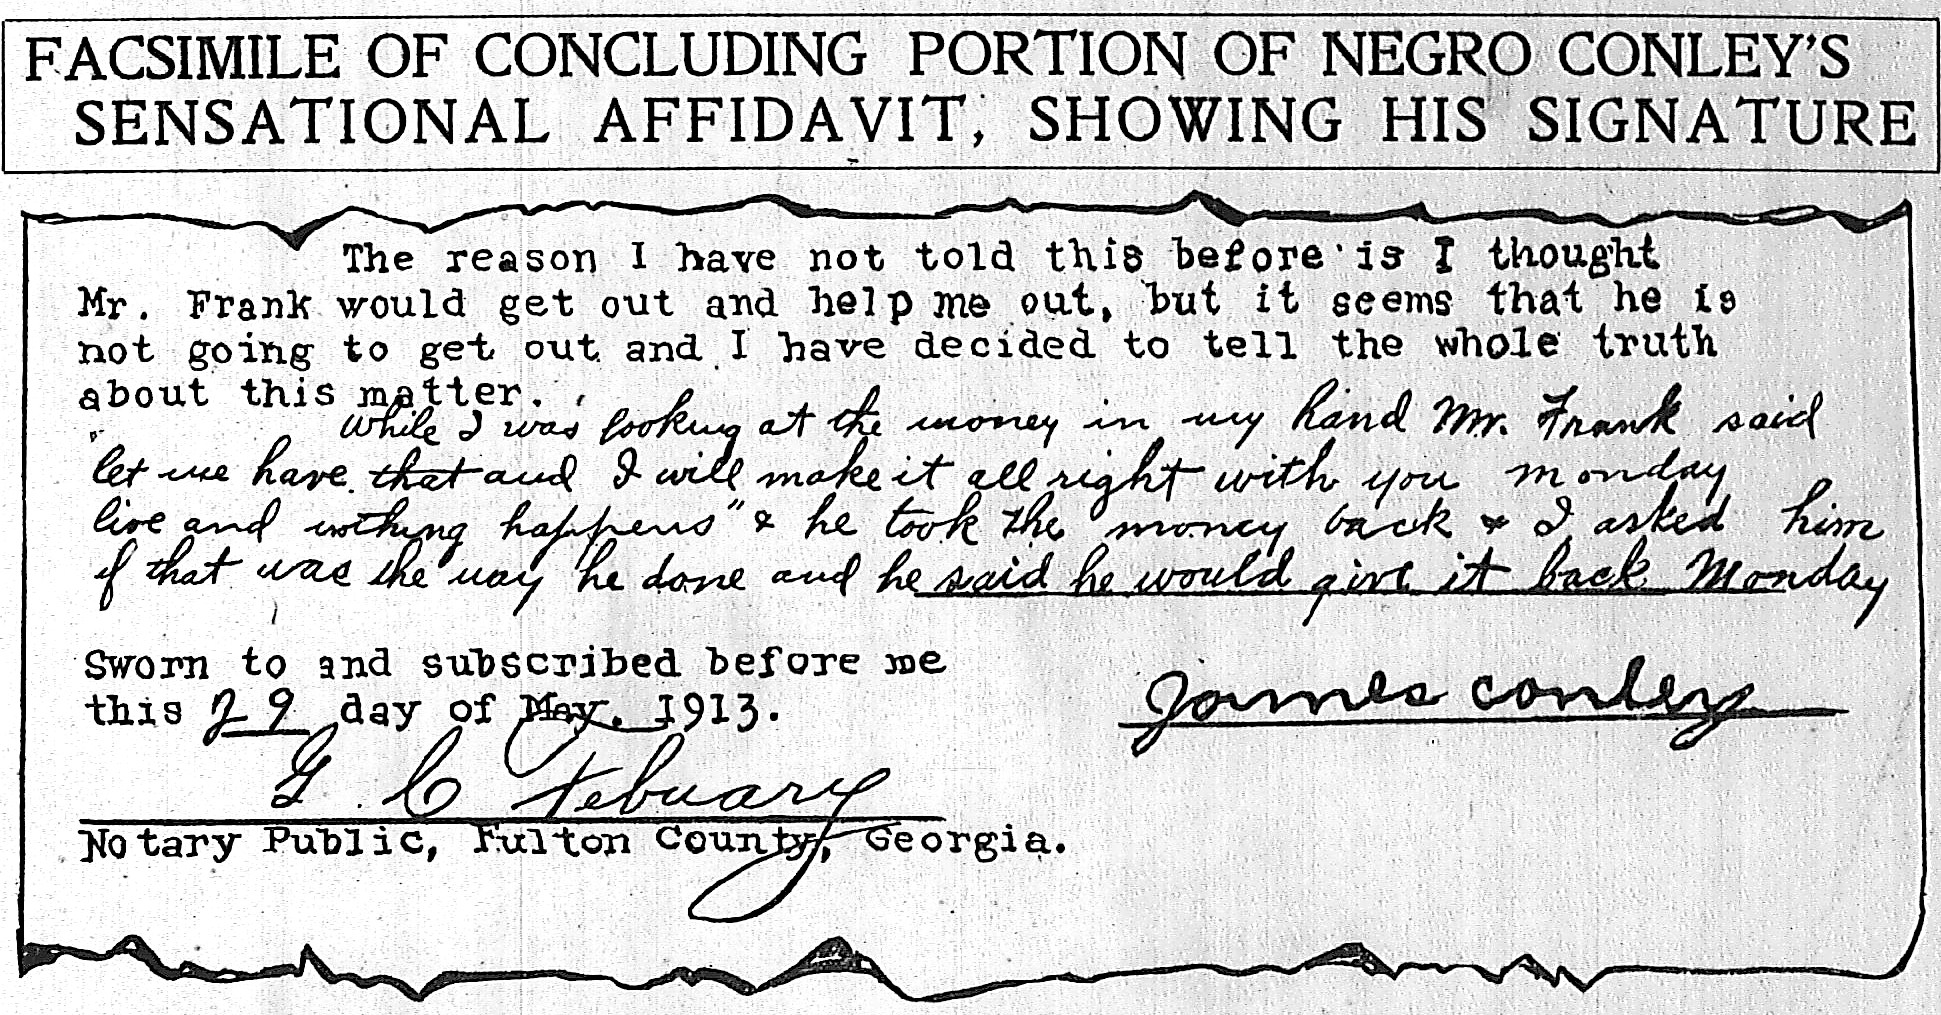 FACSIMILE OF CONCLUDING PORTION OF NEGRO CONLEY'S
SENSATIONAL AFFIDAVIT, SHOWING HIS SIGNATURE
The reason I have not told this before is I thought
Mr. Frank would get out and help me out, but it seems that he is
not going to get out and I have decided to tell the whole truth
about this matter.
While I was looking at the money in my hand Mr. Frank said
"let me have that and I will make it all right with you Monday
live and nothing happens" & he took the money back & I asked him
if that was the way he done and he said he would give it back Monday
Sworn to and subscribed before me
this 29 day of May. 1913.
James Conley
G C Febuary
Notary Public, Fulton County, Georgia.